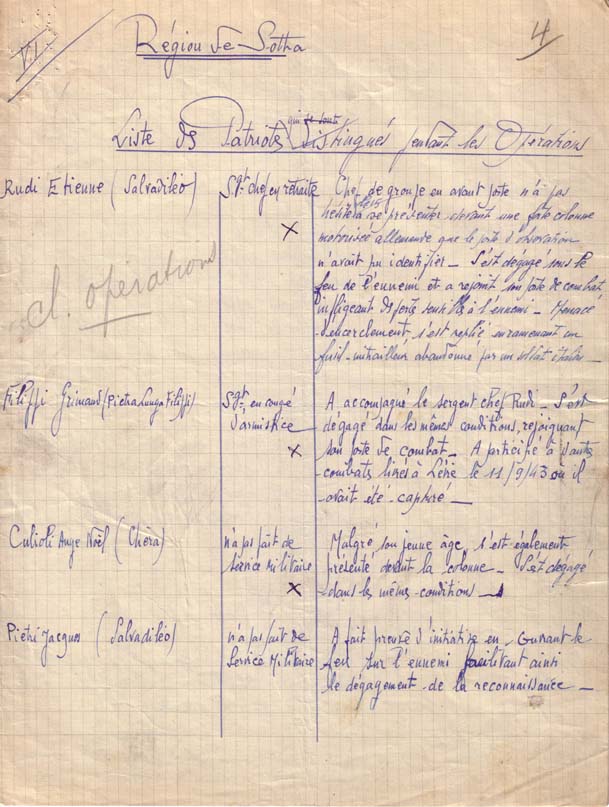 VI
4
Région de Sotta
Liste des Patriotes qui se sont distingués pendant les Opérations
Rudi Etienne (Salvadiléo)
Sgt chef en retraite
X
Chef de groupe en avant poste n'a pas
hésité à se présenter devant une forte colonne
motorisée allemande que le poste d'observation
n'avait pu identifier - S'est dégagé sous le
feu de l'ennemi et a rejoint son poste de combat,
infligeant des pertes sensibles à l'ennemi - Menacé
d'encerclement, s'est replié en ramenant un
fusil-mitrailleur abandonné par un soldat italien
cl. opérations
Filippi Grimaud (Pietra Longa Filippi)
Sgt en congé
d'armistice
X
A accompagné le sergent chef Rudi - S'est
dégagé dans les mêmes conditions, rejoignant
son poste de combat - A participé à d'autres
combats livrés à le 11/9/43 où il
avait été capturé -
Culioli Ange Noël (Chèra)
n'a pas fait de
service militaire
X
Malgré son jeune âge, s'est également
présenté devant la colonne - S'est dégagé
dans les mêmes conditions -
Piétri Jacques (Salvadiléo)
n'a pas fait de
Service Militaire
A fait preuve d'initiative en ouvrant le
feu sur l'ennemi facilitant ainsi
le dégagement de la reconnaissance -